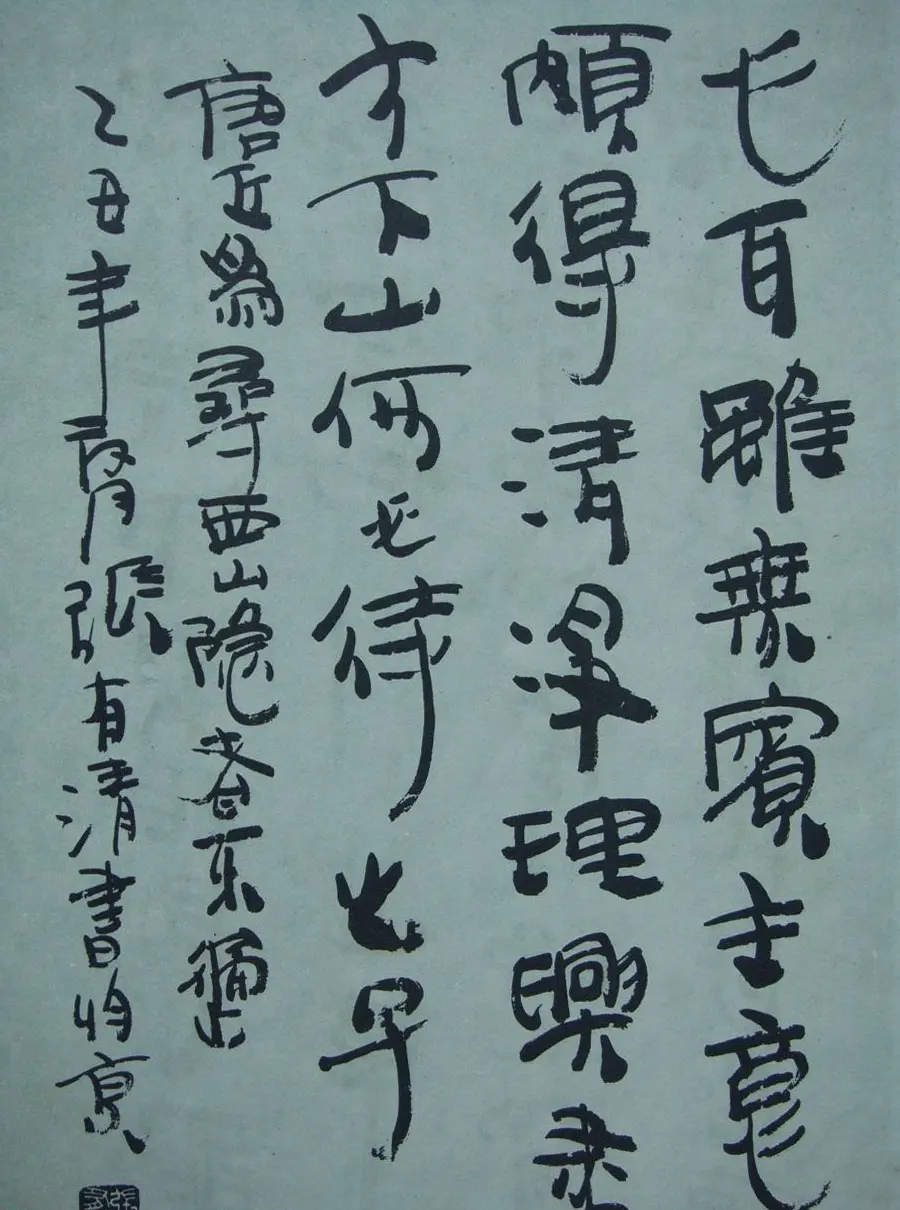 心耳雖無賓主意
頗得清淨理興盡
方下山何必待之子
唐丘為尋西山隱者不遇
乙丑年夏月張有清書於京